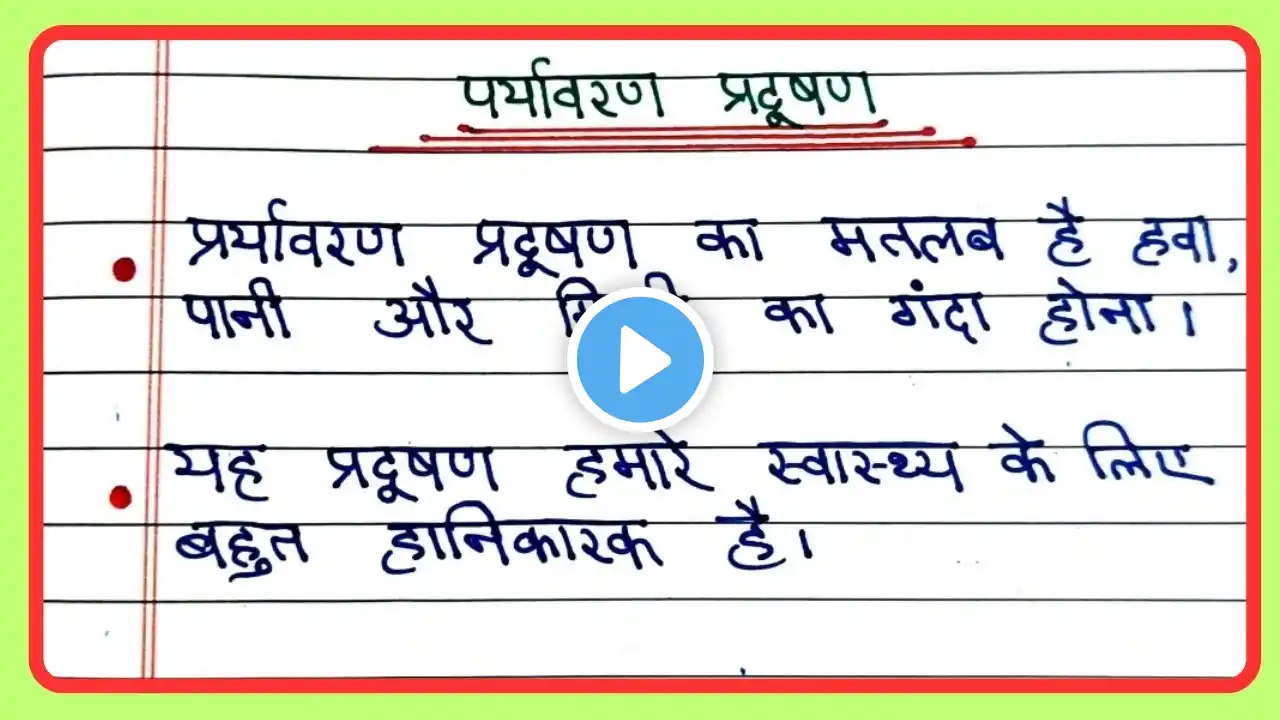 पर्यावरण प्रदूषण
प्रर्यावरण प्रदूषण का मतलब है हवा,
पानी और का गंदा होना।
यह प्रदूषण हमारे स्वास्थ्य के लिए
बहुत हानिकारक है।